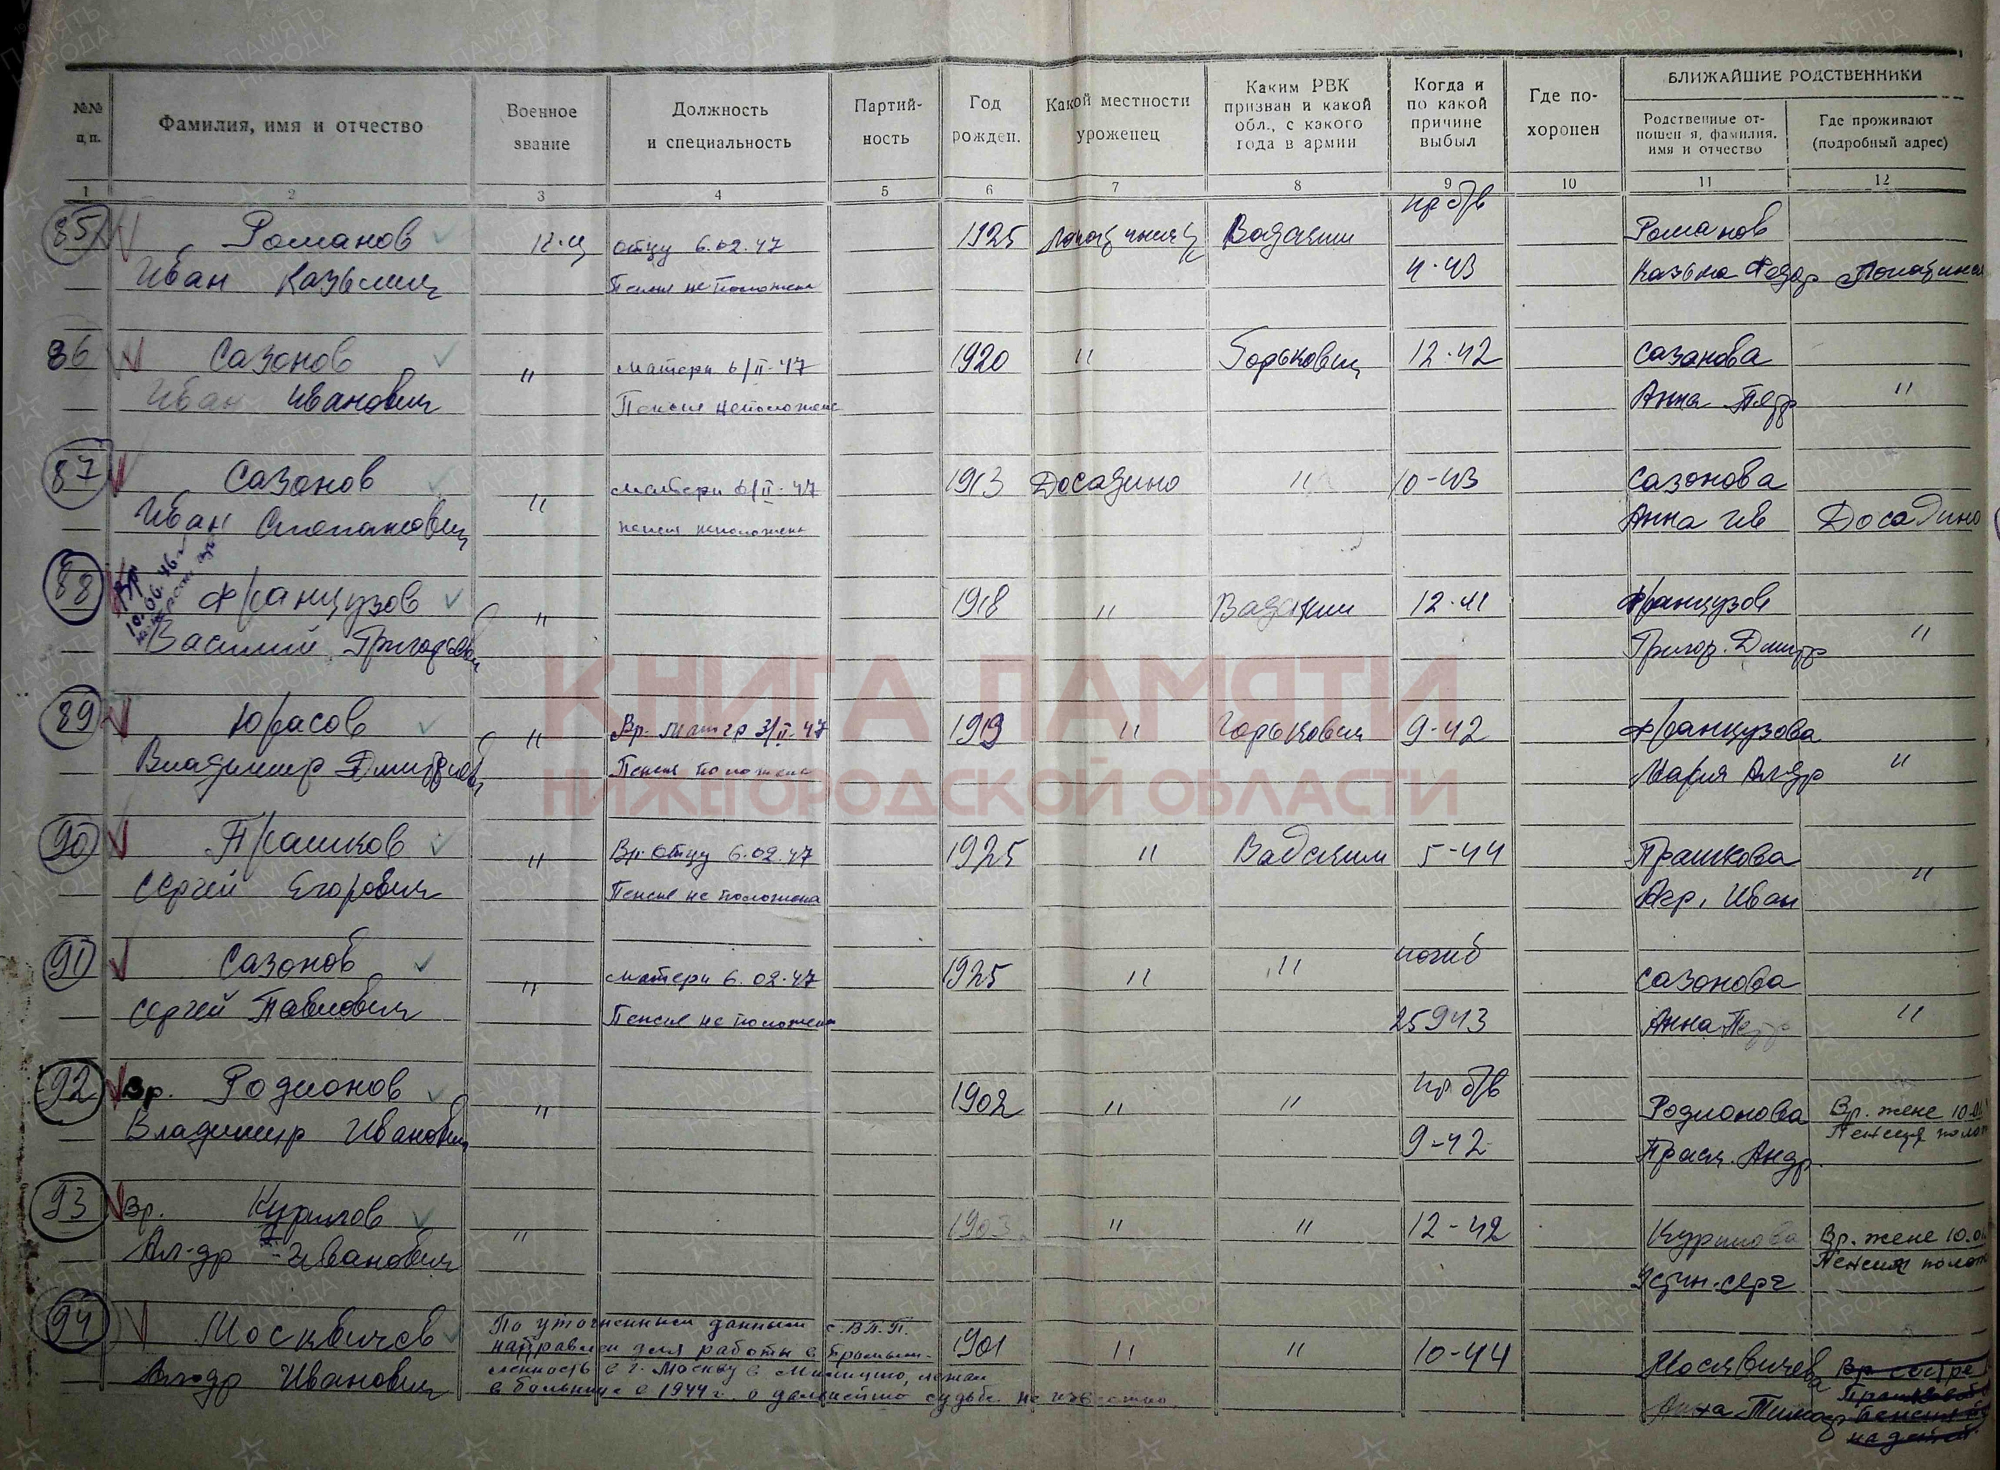 №№ п, п.
Фамилия, имя и отчество
Военное звание
Должность и специальность
Партий- ность
Год рожден.
Какой местности уроженец
Каким РВК призван и какой обл., с какого года в армии
Когда и по какой причине выбыл
Где по- хоронен
БЛИЖАЙШИЕ РОДСТВЕННИКИ
Родственные от- ношен я, фамилия, имя и отчество
Где проживают (подробный адрес)
1 2 3 4 5 6 7 8 9 10 11 12
пр б/в
85 Романов отцу 6.02.47 1925 Вадским Романов
Иван Казьмич Пенсия не положена 4-43 Казьма Федор
86 Сазонов " матери 6/II-47 1920 " Горьковск 12-42 Сазанова
Иван Иванович Пенсия неположена Анна Петр "
87 Сазонов " матери 6/II-47 1913 Досадино " 10-43 Сазонова
Иван Степанович пенсия неположена Анна Ив Досадино
88 Вр 10.06.46 Французов " 1918 " Вадским 12-41 Французов
Василий Григорьевич Григор. Дмитр "
89 Юрасов " Вр. матер 3/II-47 1913 " Горьковск 9-42 Французова
Владимир Дмитриев Пенсия положена Мария Ал-др "
90 Прашков " Вр. отцу 6.02.47 1925 " Вадским 5-44 Прашкова
Сергей Егорович Пенсия не положена Иван "
91 Сазонов " матери 6.02.47 1925 " " погиб Сазонова
Сергей Павлович Пенсия не положена 25943 Анна Петр "
92 Вр. Родионов " 1902 " " пр б/в Родионова Вр. жене 10.0
Владимир Иванович 9-42 Праск. Андр. Пенсия полож
93 Вр. Курилов " 1903 " " 12-42 Курилова Вр. жене 10.0
Ал-др Иванович Устин. Серг Пенсия полож
94 Москвичев По уточненным данным с. В.П.П. 1901 " " 10-44 Москвичева Вр сестре
Ал-др Иванович направлен для работы в промыш- Анна Тимоф
ленность в г. Москву в Милицию, лежал
в больнице в 1944 г. о дальнейшей судьбе не известно.
на детей
КНИГА ПАМЯТИ
НИЖЕГОРОДСКОЙ ОБЛАСТИ
ПАМЯТЬ НАРОДА